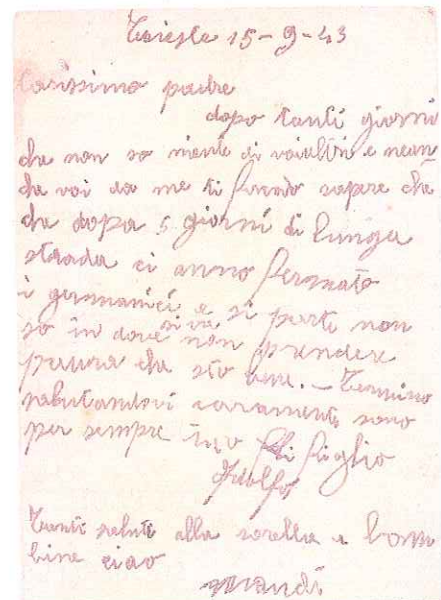 Trieste 15-9-43
Carissimo padre
dopo tanti giorni
che non so niente di voialtri e nean
che voi da me ti facendo sapere che
che dopo 5 giorni di lunga
strada ci anno fermato
i germanici e si parte non
so in dove si va non prendere
paura che sto bene. - Termino
salutandovi caramente sono
per sempre tuo figlio
Adolfo
Tanti saluti alla sorella e bam
bine ciao
mandi